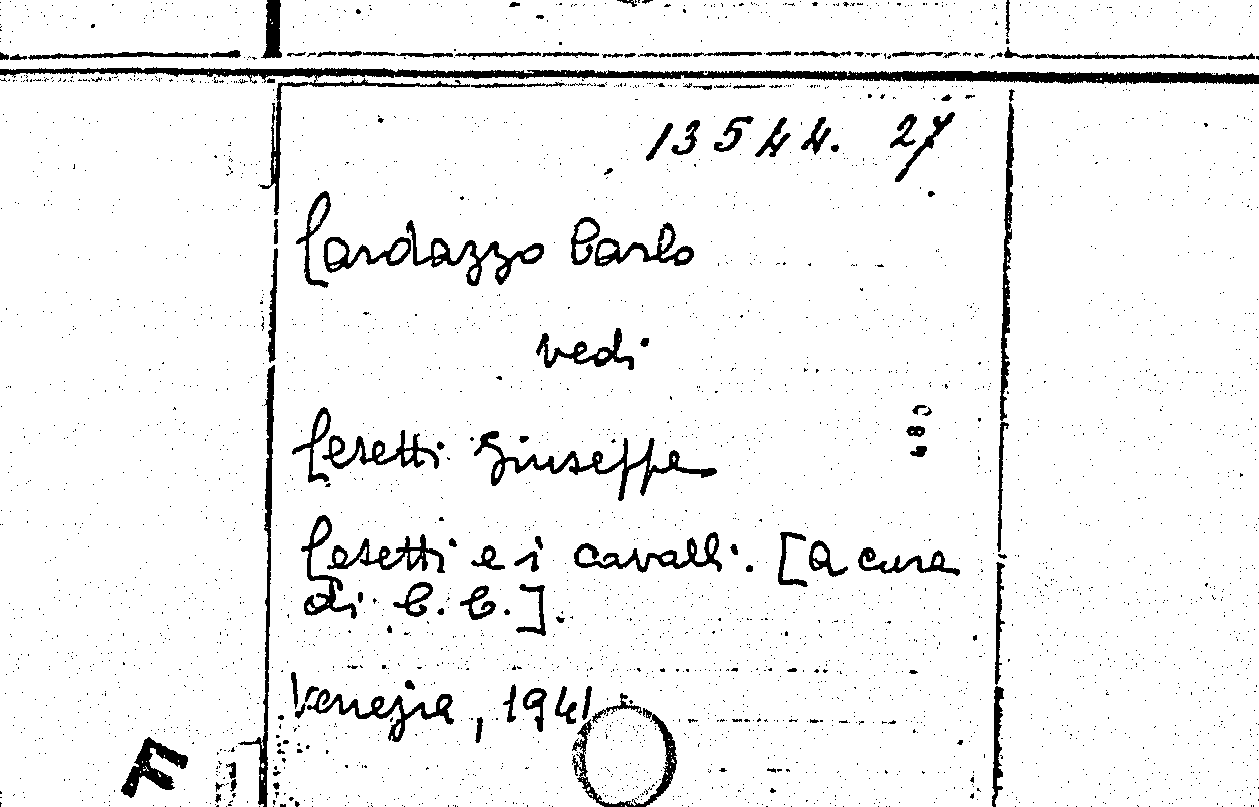 13544. 27
Cardazzo Carlo
vedi
Cesetti Giuseppe
Cesetti e i cavalli. [a cura
di C. C.].
Venezia, 1941